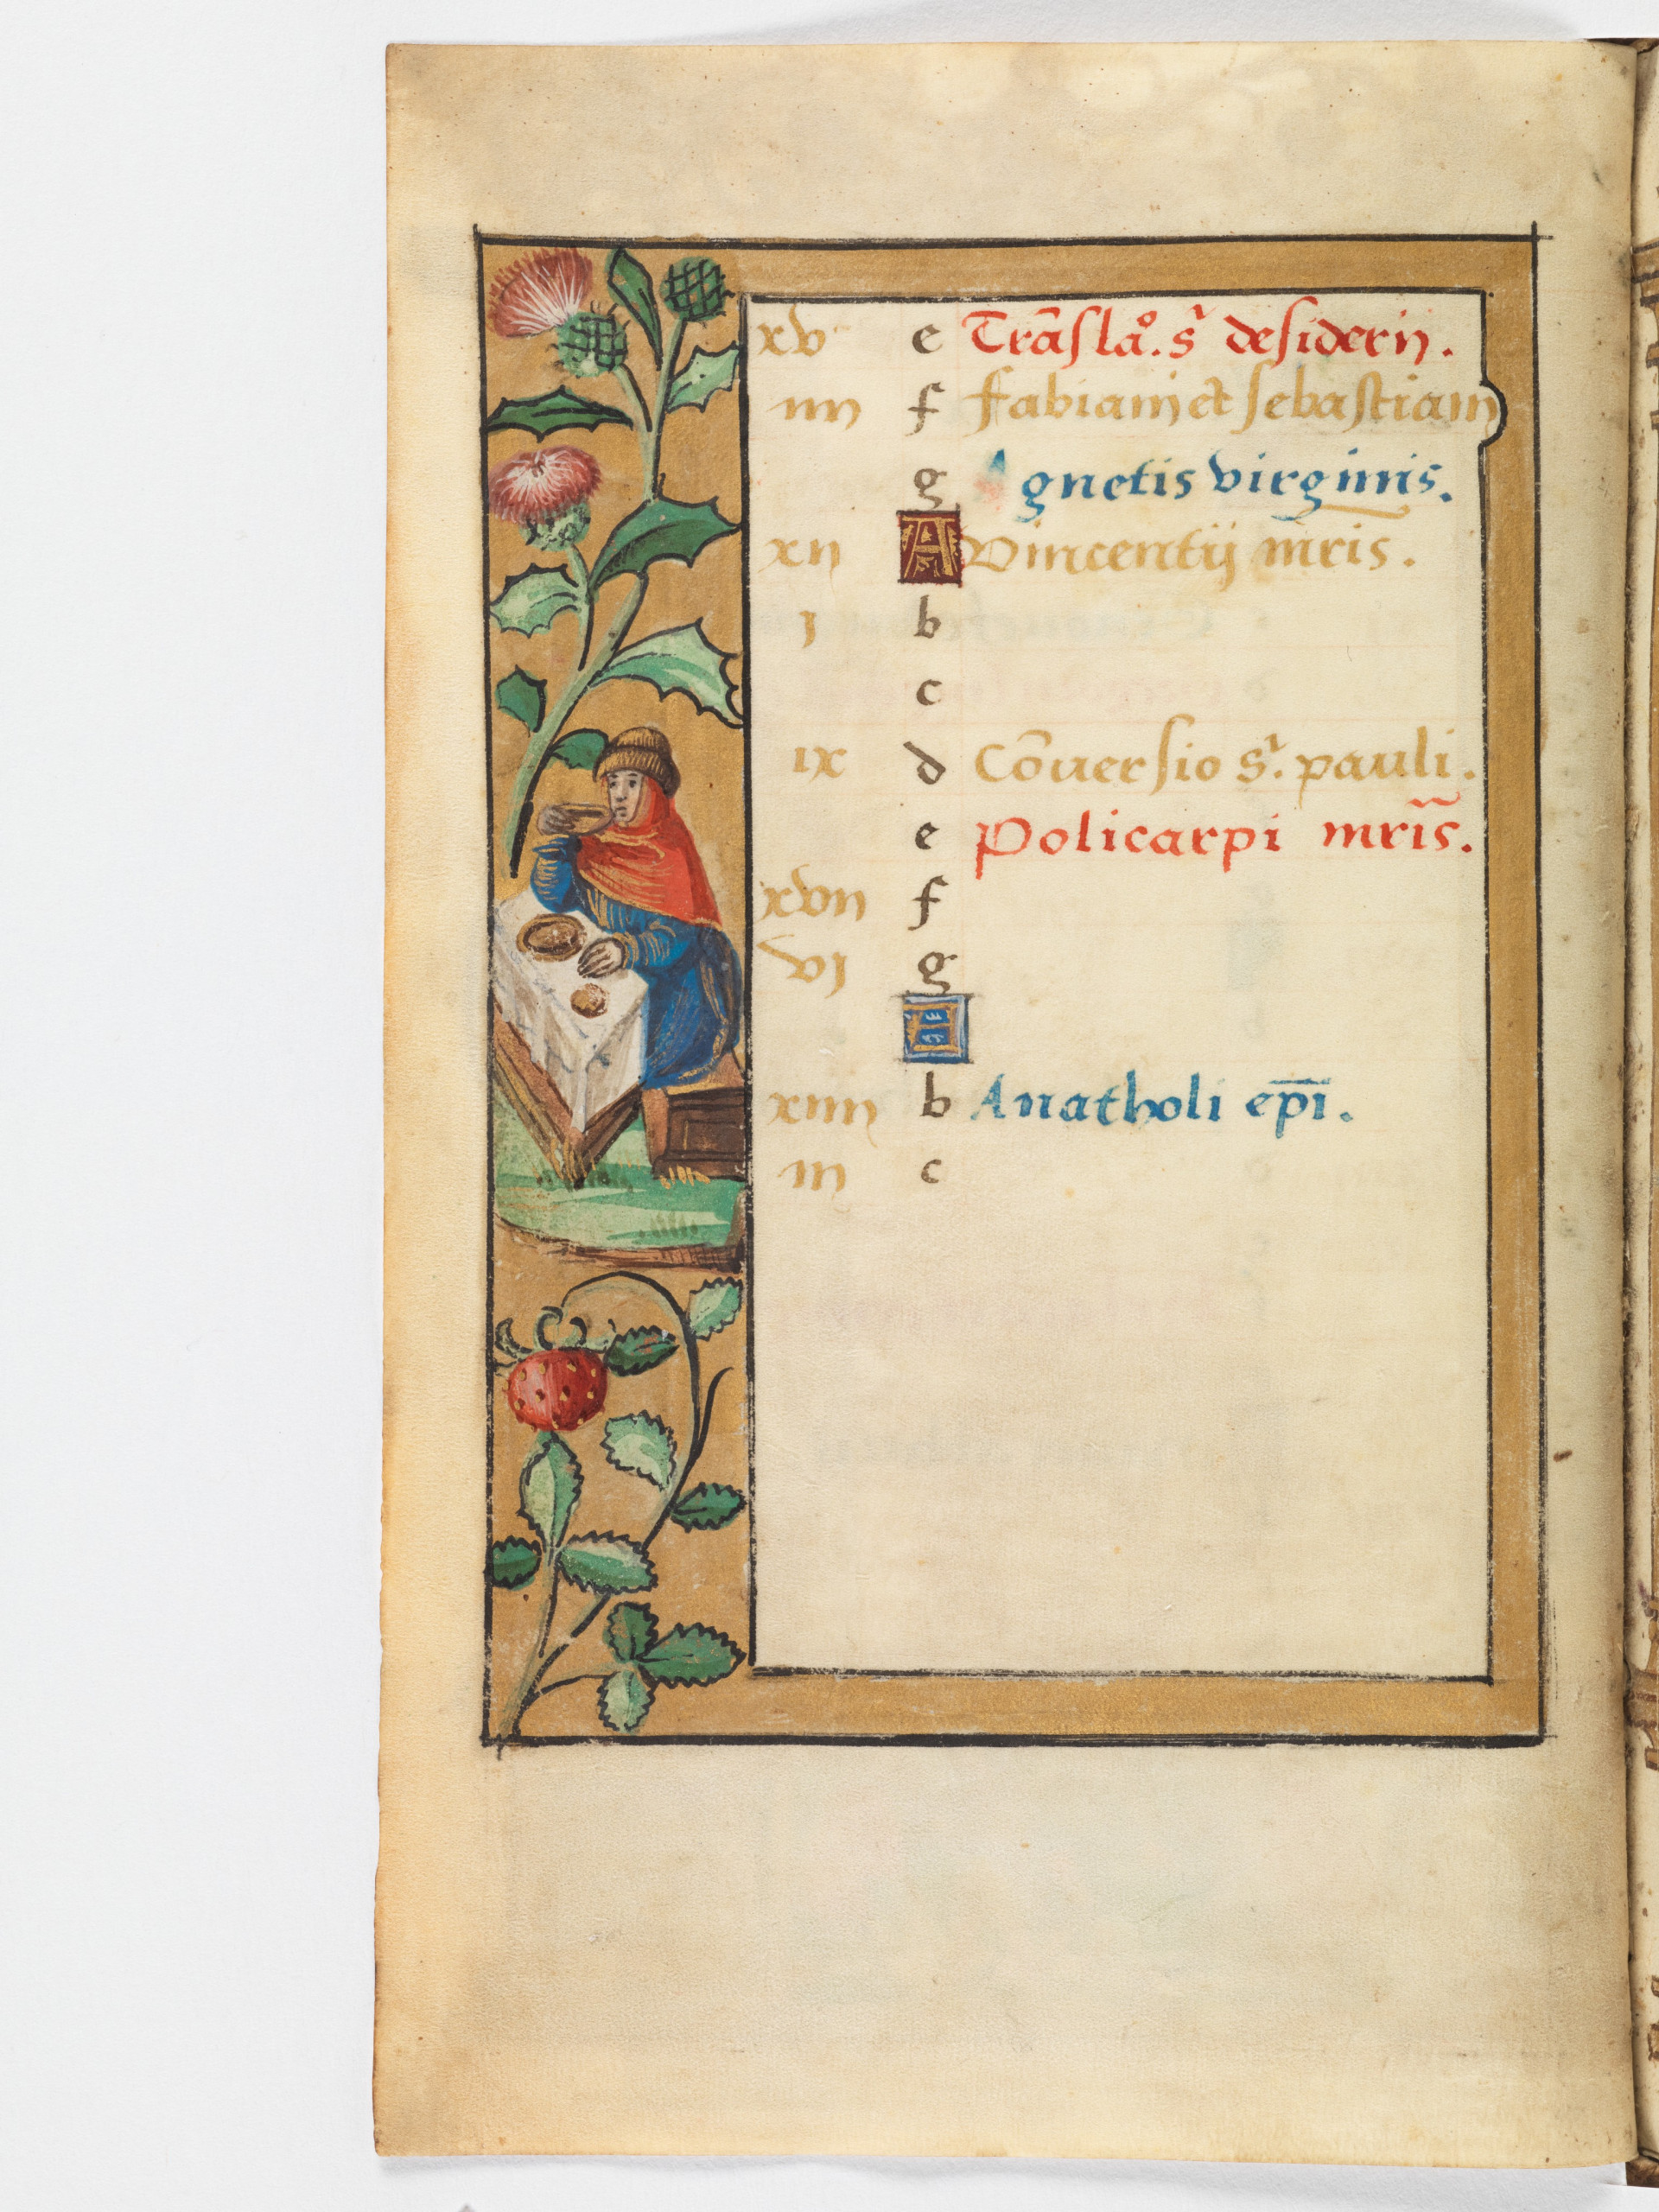 xv e Trãslaº. s̉ desiderij.
iiii f Fabiani et sebastiani
g Agnetis virginis.
xii A Vincentij mris.
i b
c
ix d Cõuersio s̉. pauli.
e Policarpi mr̃is.
xvii f
vi g
A
xiiii b Anatholi ep̄i.
iii c